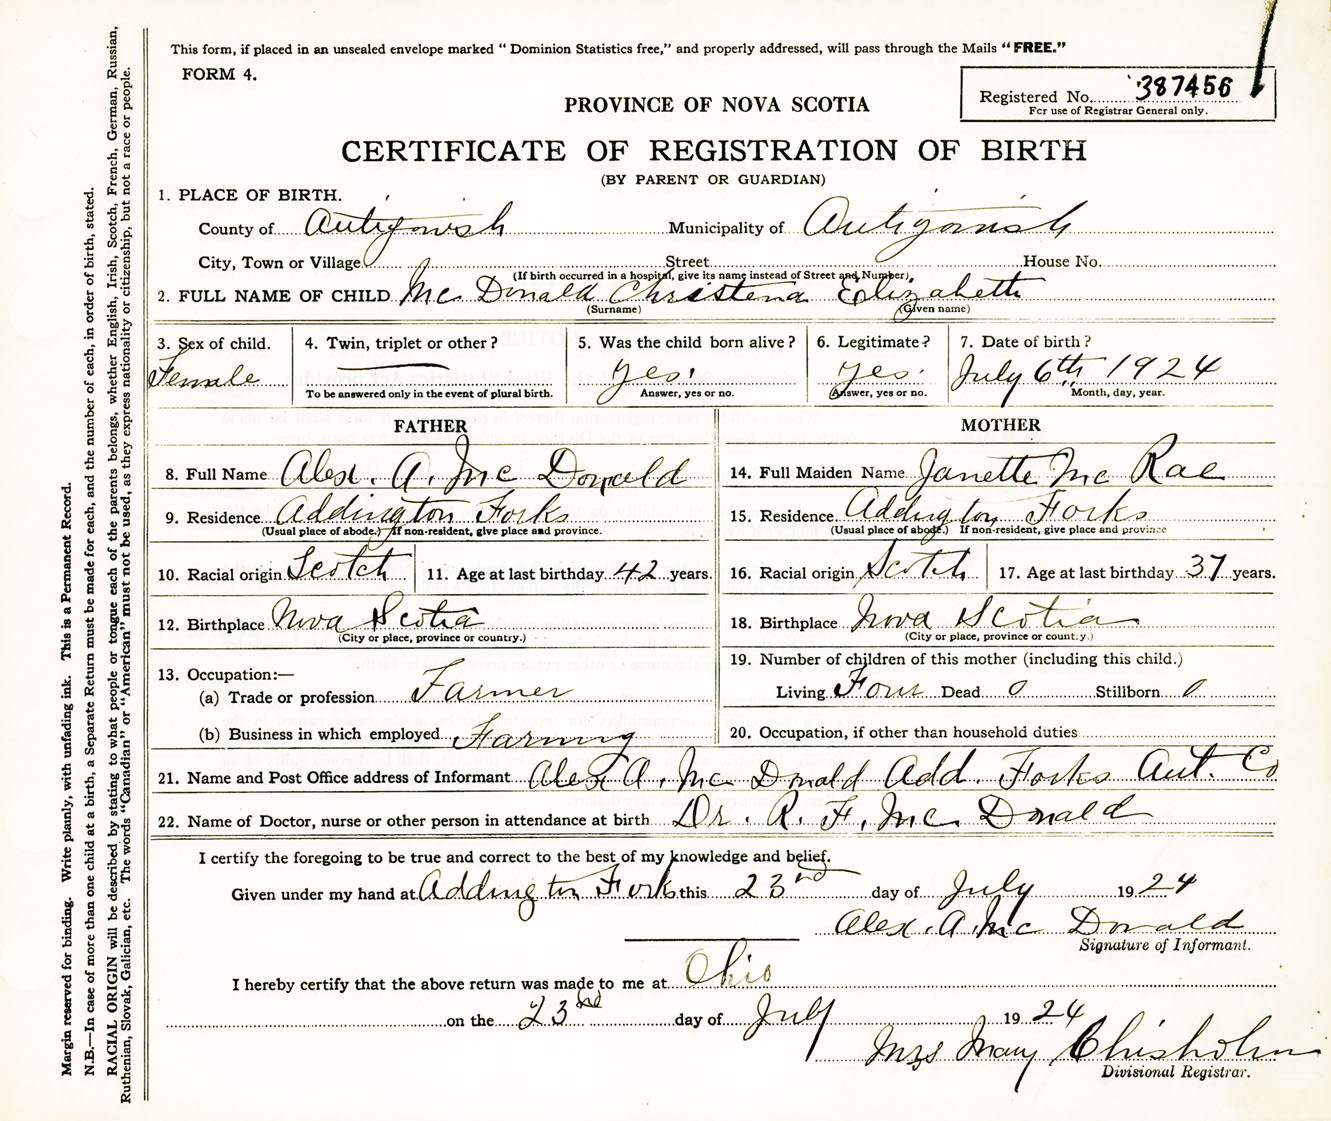 This form, if placed in an unsealed envelope marked "Dominion Statistics free," and properly addressed, will pass through the Mails "FREE."
FORM 4.
Registered No. 387456
For use of Registrar General only.
PROVINCE OF NOVA SCOTIA
CERTIFICATE OF REGISTRATION OF BIRTH
(BY PARENT OR GUARDIAN)
1. PLACE OF BIRTH.
County of Antigonish Municipality of Antigonish
City, Town or Village Street House No.
(If birth occurred in a hospital, give its name instead of Street and Number).
2. FULL NAME OF CHILD Mc Donald Christena Elizabeth
(Surname) (Given name)
3. Sex of child. 4. Twin, triplet or other? 5. Was the child born alive? 6. Legitimate? 7. Date of birth?
Female — Yes. Yes. July 6th 1924
To be answered only in the event of plural birth. Answer, yes or no. Answer, yes or no. Month, day, year.
FATHER MOTHER
8. Full Name Alex. A. Mc Donald 14. Full Maiden Name Janette Mc Rae
9. Residence Addington Forks 15. Residence Addington Forks
(Usual place of abode.) If non-resident, give place and province. (Usual place of abode.) If non-resident, give place and province
10. Racial origin Scotch 11. Age at last birthday 42 years. 16. Racial origin Scotch 17. Age at last birthday 37 years.
12. Birthplace Nova Scotia 18. Birthplace Nova Scotia
(City or place, province or country.) (City or place, province or country.)
13. Occupation:— 19. Number of children of this mother (including this child.)
(a) Trade or profession Farmer Living Four Dead 0 Stillborn 0
(b) Business in which employed Farming 20. Occupation, if other than household duties
21. Name and Post Office address of Informant Alex A. Mc Donald Add. Forks Ant. Co
22. Name of Doctor, nurse or other person in attendance at birth Dr. R. F. Mc Donald
I certify the foregoing to be true and correct to the best of my knowledge and belief.
Given under my hand at Addington Forks this 23nd day of July 1924
Alex. A. Mc Donald
Signature of Informant.
I hereby certify that the above return was made to me at Ohio
on the 23nd day of July 1924
Mrs Mary Chisholm
Divisional Registrar.
Margin reserved for binding. Write plainly, with unfading ink. This is a Permanent Record.
N.B.—In case of more than one child at a birth, a Separate Return must be made for each, and the number of each, in order of birth, stated.
RACIAL ORIGIN will be described by stating to what people or tongue each of the parents belongs, whether English, Irish, Scotch, French, German, Russian,
Ruthenian, Slovak, Galician, etc. The words "Canadian" or "American" must not be used, as they express nationality or citizenship, but not a race or people.